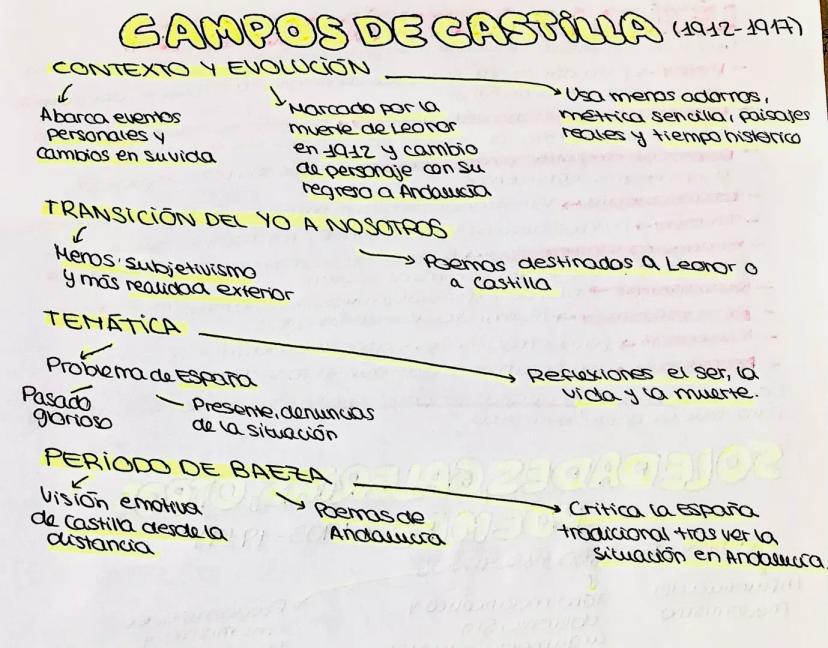 CAMPOS DE CASTILLA (1912-1917)
CONTEXTO Y EVOLUCIÓN
Abarca eventos
personales y
cambios en su vida
Marcado por la
muerte de Leonor
en 1912 y cambio
de personaje con su
regreso a Andalucía
Usa menos adornos,
métrica sencilla, paisajes
reales y tiempo histórico
TRANSICIÓN DEL YO A NOSOTROS
Menos subjetivismo
y más realidad exterior
Poemas destinados a Leonor o
a Castilla
TEMÁTICA
Problema de España
Pasado
glorioso
Presente, denuncias
de la situación
Reflexiones el ser, la
vida y la muerte.
PERIODO DE BAEZA
Visión emotiva
de Castilla desde la
distancia
Poemas de
Andalucía
Critica la España
tradicional tras ver la
situación en Andalucía